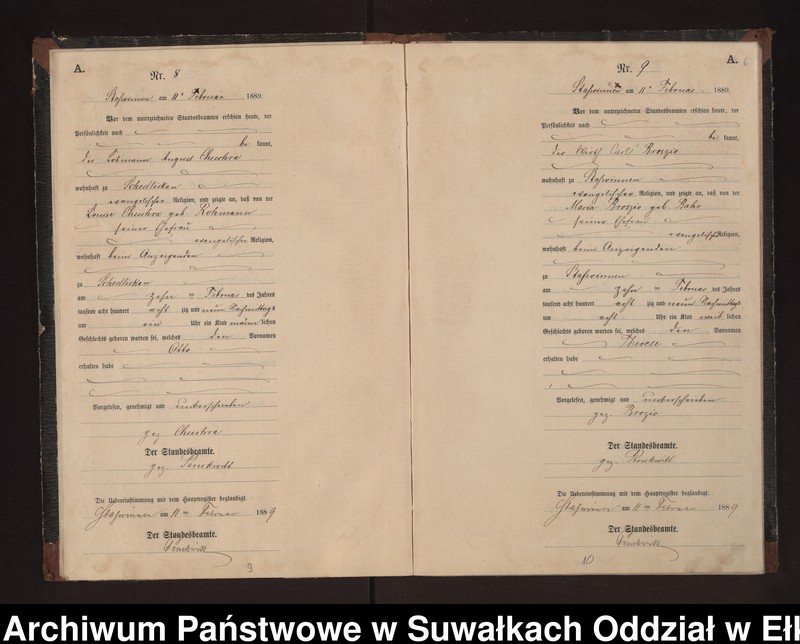 A.
Nr. 8
am 11ᵗ Februar 1889.
Vor dem unterzeichneten Standesbeamten erschien heute, der
Persönlichkeit nach
be kannt,
der Losmann August
wohnhaft zu Schedlisken
evangelischer Religion, und zeigte an, daß von der
Louise geb.
seiner Ehefrau
evangelischer Religion,
wohnhaft beim Anzeigenden
zu Schedlisken
am zehn ten Februar des Jahres
tausend acht hundert acht zig und neun Nachmittags
um ein Uhr ein Kind männ lichen
Geschlechts geboren worden sei, welches den Vornamen
Otto
erhalten habe
Vorgelesen, genehmigt und unterschrieben
gez
Der Standesbeamte.
gez.
Die Uebereinstimmung mit dem Hauptregister beglaubigt.
am 11 ten Februar 1889
Der Standesbeamte.
9
A.
6
Nr. 9
am 11ᵗ Februar 1889.
Vor dem unterzeichneten Standesbeamten erschien heute, der
Persönlichkeit nach
be kannt,
der Wirth Carl Broszio
wohnhaft zu
evangelischer Religion, und zeigte an, daß von der
Maria Broszio geb.
seiner Ehefrau
evangelisch Religion,
wohnhaft beim Anzeigenden
zu
am zehn ten Februar des Jahres
tausend acht hundert acht zig und neun Nachmittags
um acht Uhr ein Kind weib lichen
Geschlechts geboren worden sei, welches den Vornamen
Therese
erhalten habe
Vorgelesen, genehmigt und unterschrieben
gez. Broszio
Der Standesbeamte.
gez.
Die Uebereinstimmung mit dem Hauptregister beglaubigt.
am 11 ten Februar 1889
Der Standesbeamte.
10
Archiwum Państwowe w Suwałkach Oddział w Eł